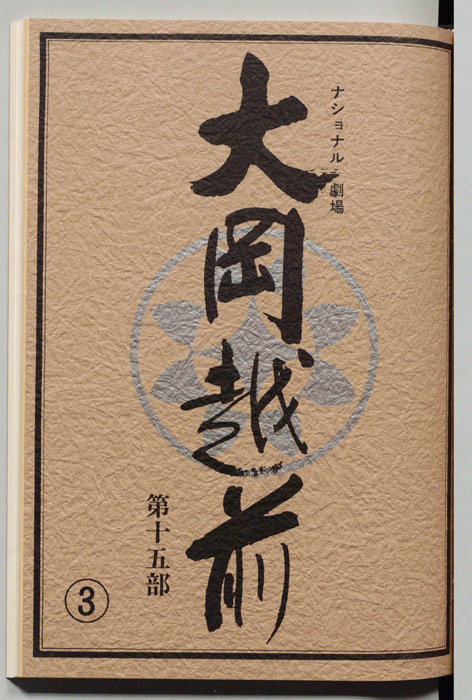 ナショナル劇場
大岡越前
第十五部
③